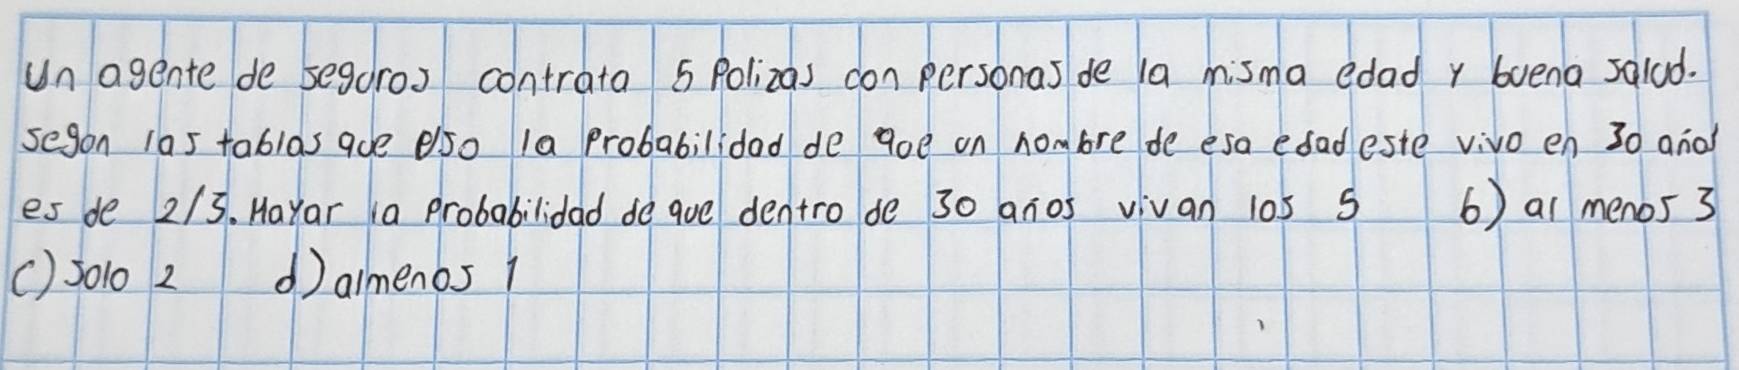 Un agente de seguros contrata 5 Polizas con personas de la misma edad y buena salud.
segun las tablas que uso la probabilidad de que un hombre de esa edad este vivo en 30 años
es de 2/3. Hayar la probabilidad de que dentro de 30 años vivan los 5 b) al menos 3
c) solo 2 d) almenos 1